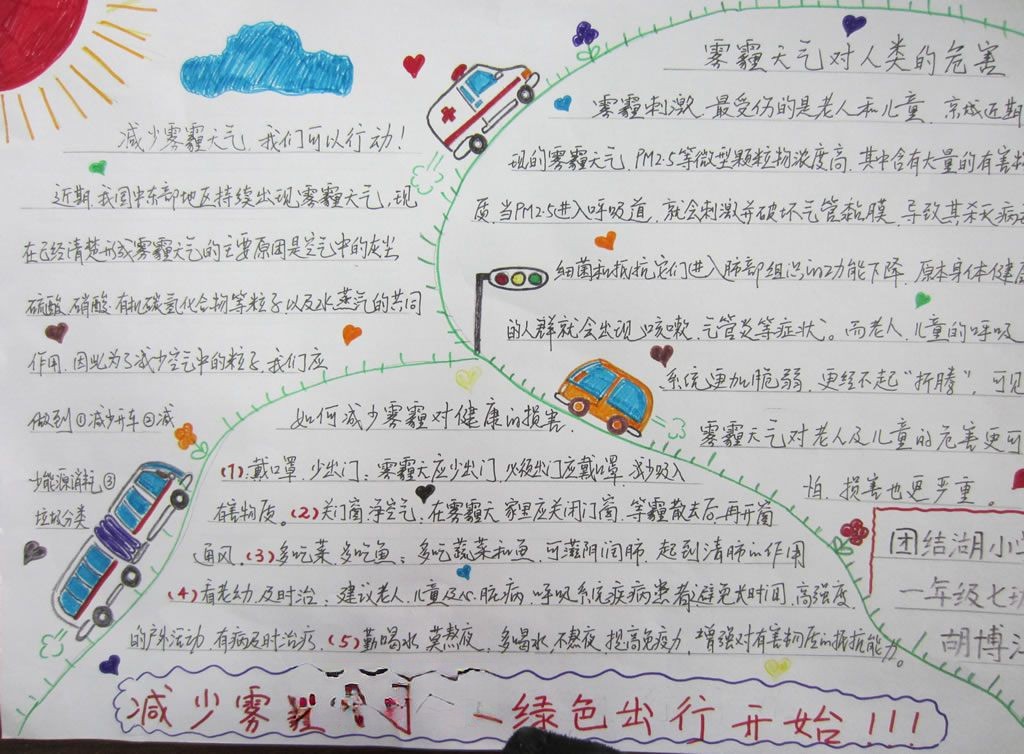 减少雾霾天气，我们可以行动！
近期，我国中东部地区持续出现雾霾天气，现
在已经清楚形成雾霾天气的主要原因是空气中的灰尘
硫酸、硝酸、有机碳氢化合物等粒子以及水蒸气的共同
作用，因此为了减少空气中的粒子，我们应
做到①减少开车②减
少能源消耗③
垃圾分类
雾霾天气对人类的危害
雾霾刺激，最受伤的是老人和儿童，京城近期
现的雾霾天气，PM2.5等微型颗粒物浓度高，其中含有大量的有害物
质，当PM2.5进入呼吸道，就会刺激并破坏气管黏膜，导致其杀灭病
细菌和抵抗它们进入肺部组织的功能下降，原本身体健康
的人群就会出现咳嗽、气管炎等症状。而老人、儿童的呼吸
系统更加脆弱，更经不起“折腾”，可见
雾霾天气对老人及儿童的危害更可
怕，损害也更严重。
如何减少雾霾对健康的损害
(1)、戴口罩，少出门：雾霾天应少出门，必须出门应戴口罩，减少吸入
有害物质。(2)关门窗，净空气，在雾霾天，家里应关闭门窗，等霾散去后，再开窗
通风。(3)多吃菜，多吃鱼：多吃蔬菜和鱼，可滋阴润肺，起到清肺的作用
(4)看老幼，及时治：建议老人、儿童及心脏病、呼吸系统疾病患者避免长时间、高强度
的户外活动，有病及时治疗。(5)勤喝水，莫熬夜，多喝水，不熬夜，提高免疫力，增强对有害物质的抵抗能力。
团结湖小学
一年级七班
胡博
减少雾霾 一绿色出行开始!!!